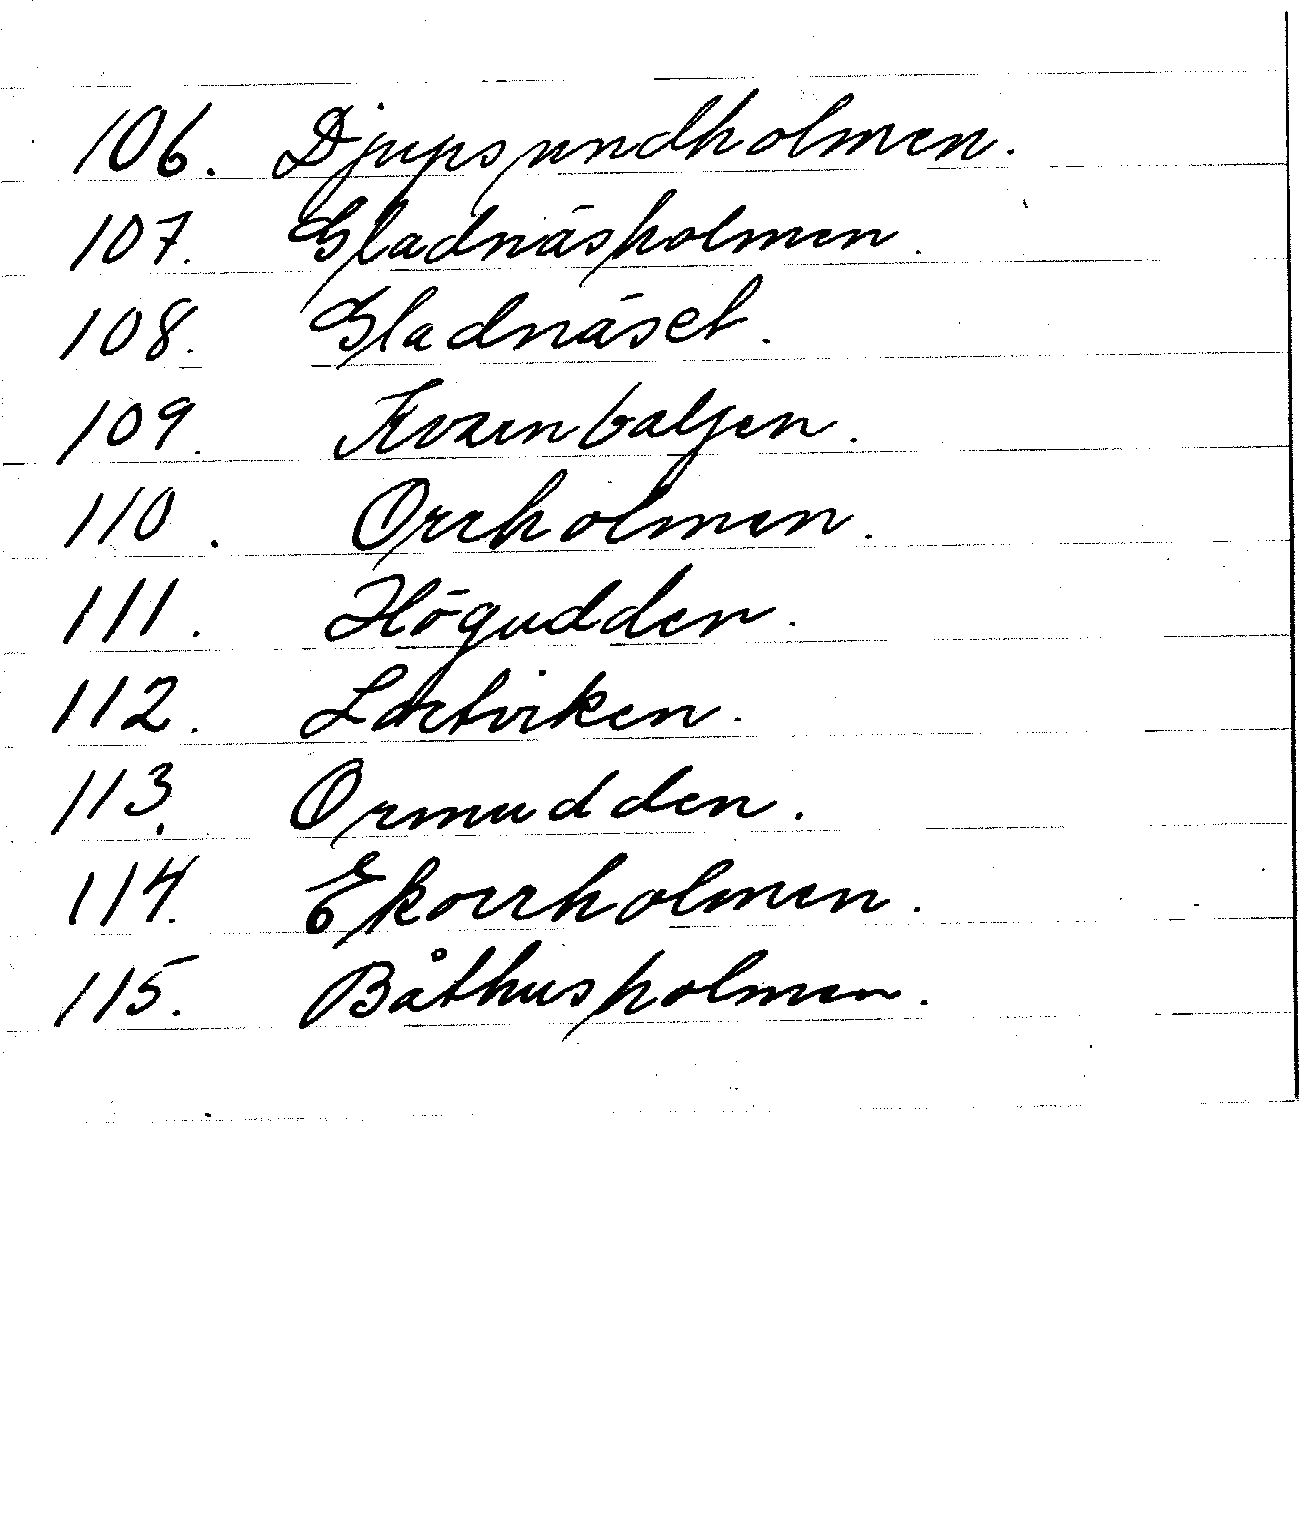 106. Djupsundholmen.
107. Gladnäsholmen.
108. Gladnäset.
109. Kvarnbaljen.
110. Orrholmen.
111. Högudden.
112. Lortviken.
113. Ormudden.
114. Ekorrholmen.
115. Båthusholmen.